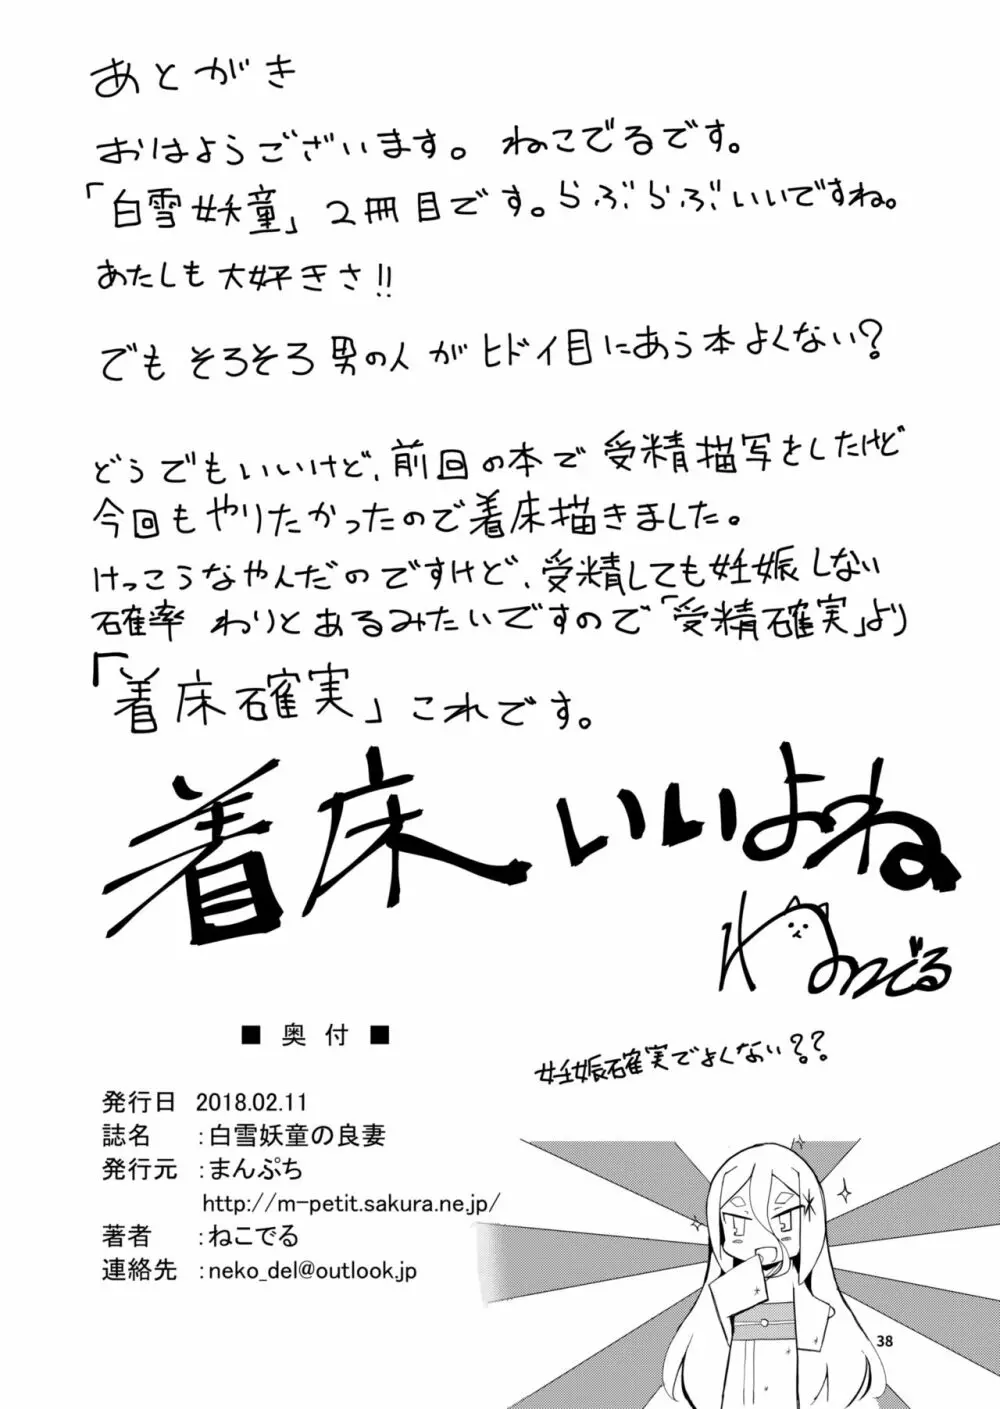 あとがき
おはようございます。ねこでるです。
「白雪妖童」2冊目です。らぶらぶいいですね。
あたしも大好きさ!!
でもそろそろ男の人がヒドイ目にあう本よくない?
どうでもいいけど、前回の本で受精描写をしたけど
今回もやりたかったので着床描きました。
けっこうなやんだのですけど、受精しても妊娠しない
確率わりとあるみたいですので「受精確実」より
「着床確実」これです。
着床いいよね
ねこでる
■ 奥 付 ■
妊娠確実でよくない??
発行日 2018.02.11
誌名 :白雪妖童の良妻
発行元 :まんぷち
http://m-petit.sakura.ne.jp/
著者 :ねこでる
連絡先 :neko_del@outlook.jp
38